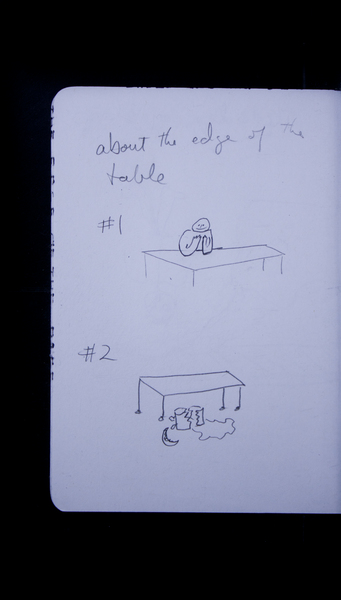 about the edge of the
table
#1
#2